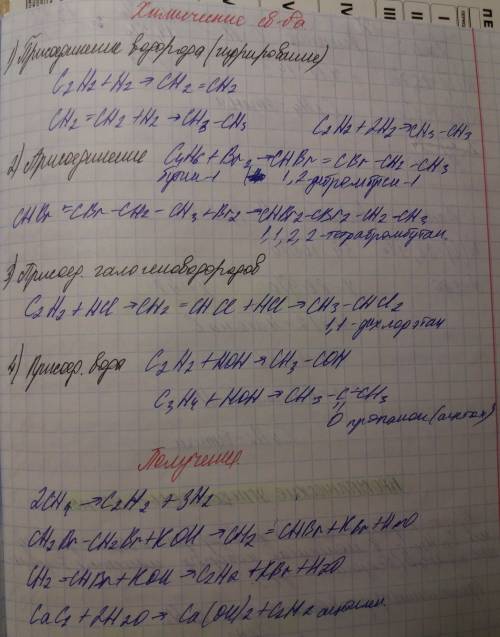 Химические св-ва
1) Присоединение водорода (гидрирование)
C2H2 + H2 → CH2 = CH2
CH2 = CH2 + H2 → CH3 - CH3 C2H2 + 2H2 → CH3 - CH3
2) Присоединение C4H6 + Br2 → CHBr = CBr - CH2 - CH3
бутин-1 1,2-дибромбутен-1
CHBr = CBr - CH2 - CH3 + Br2 → CHBr2 - CBr2 - CH2 - CH3
1,1,2,2-тетрабромбутан.
3) Присоед. галогеноводородов
C2H2 + HCl → CH2 = CHCl + HCl → CH3 - CHCl2
1,1-дихлорэтан
4) Присоед. воды C2H2 + HOH → CH3 - COH
C3H4 + HOH → CH3 - C - CH3
O пропанон (ацетон)
Получение.
2CH4 → C2H2 + 3H2
CH2Br - CH2Br + KOH → CH2 = CHBr + KBr + H2O
CH2 = CHBr + KOH → C2H2 + KBr + H2O
CaC2 + 2H2O → Ca(OH)2 + C2H2 ацетилен.